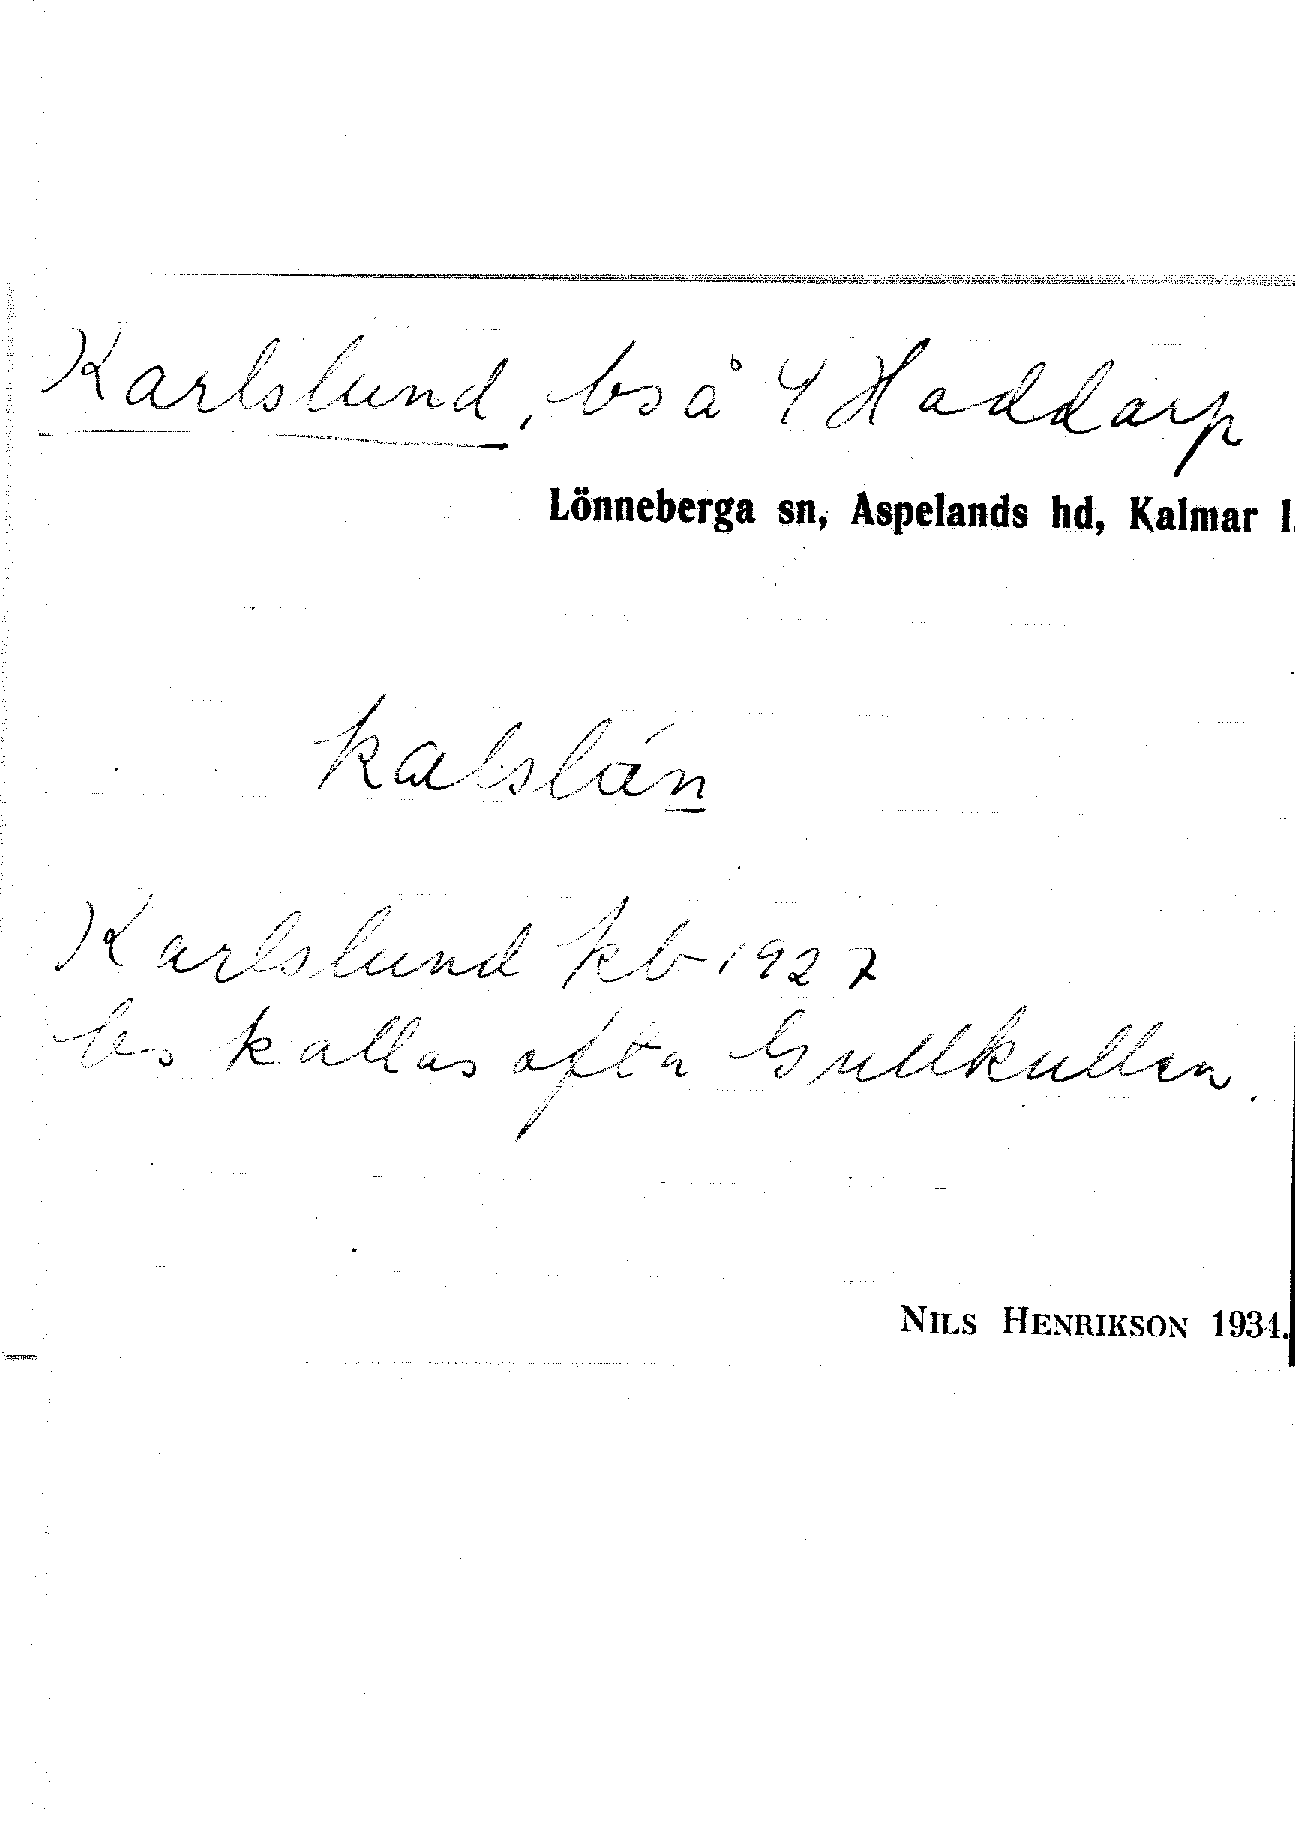 Karlslund, bs å 4 Haddarp
Lönneberga sn, Aspelands hd, Kalmar l.
Karlslund kb 1927
bs kallas ofta Gullkullen.
NILS HENRIKSON 1934.